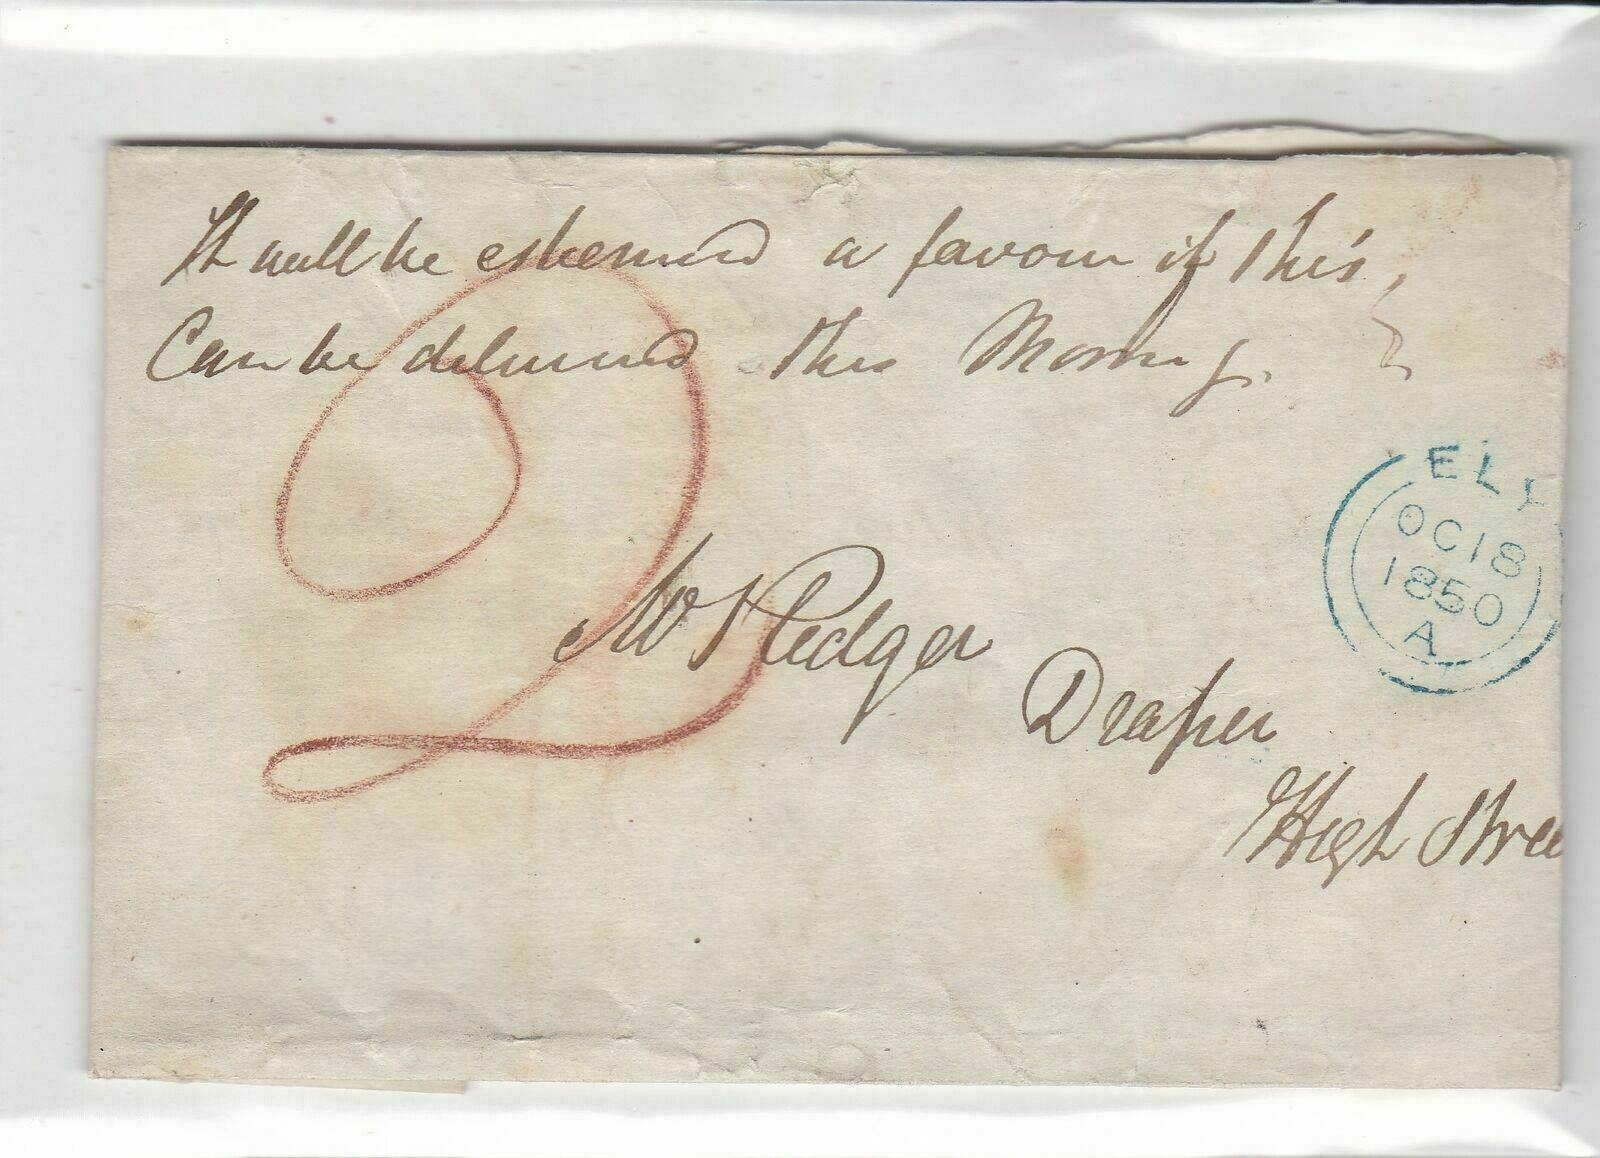 It will be esteemed a favour if this
Can be delivered this Morning.
2
ELY
OC 18
1850
A
Mr Kedger
Draper
High Stree